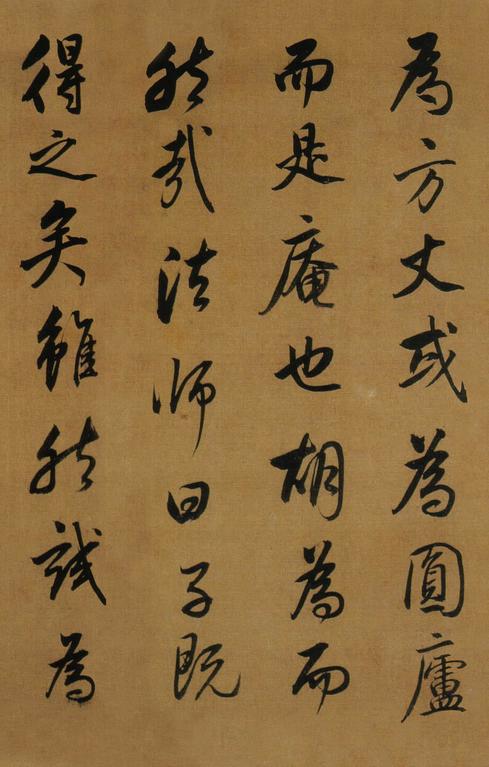 為方丈或為圓廬
而是庵也胡為而
然哉法师曰子既
得之矣雖然試為